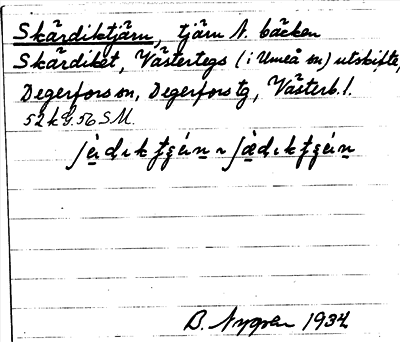 Skärdiktjärn, tjärn N. bäcken
Skärdiket, Västertegs (i Umeå sn) utskifte,
Degerfors sn, Degerfors tg, Västerb. l.
52 k 9. 56 S M.
B. Nygren 1934